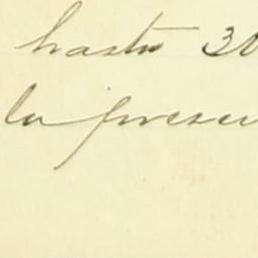 hasta 30
la presen